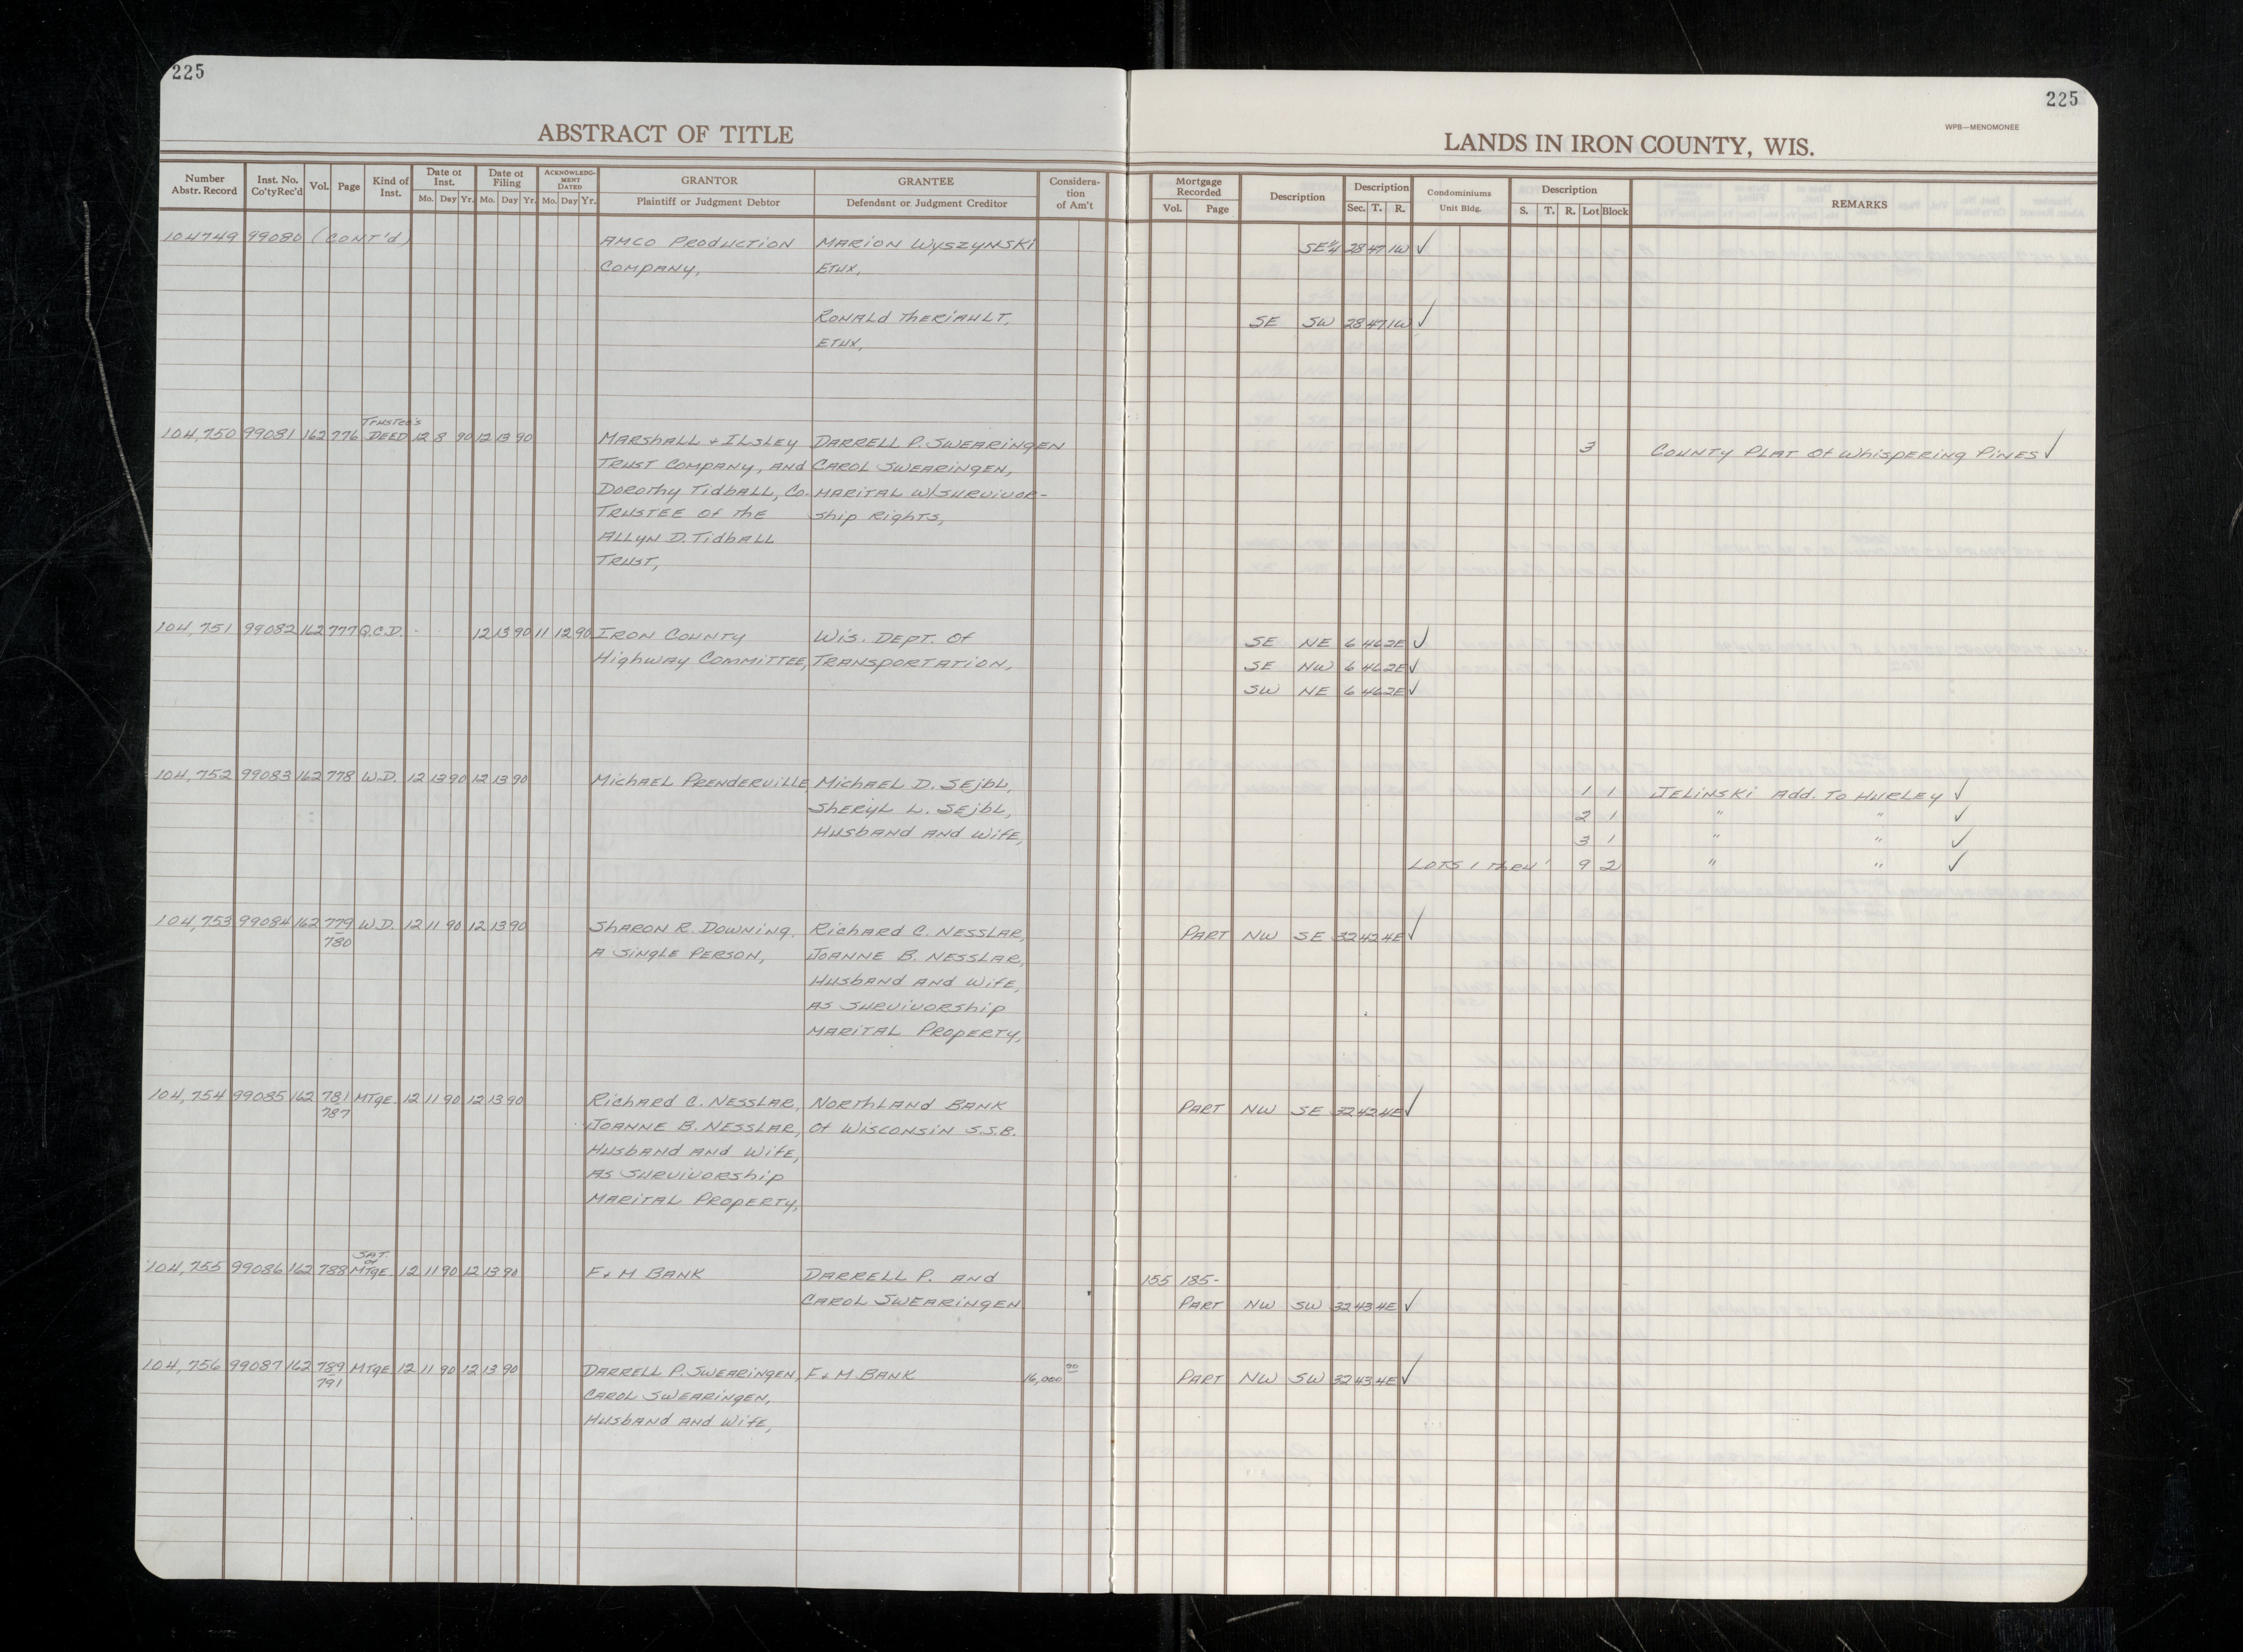 225
225
WPB—MENOMONEE
ABSTRACT OF TITLE
LANDS IN IRON COUNTY, WIS.
Number Abstr. Record | Inst. No. Co'ty Rec'd | Vol. | Page | Kind of Inst. | Date of Inst. Mo. Day Yr. | Date of Filing Mo. Day Yr. | ACKNOWLEDGMENT DATED Mo. Day Yr. | GRANTOR Plaintiff or Judgment Debtor | GRANTEE Defendant or Judgment Creditor | Consideration of Am't | Mortgage Recorded Vol. Page | Description | Description Sec. T. R. | Condominiums Unit Bldg. | Description S. T. R. Lot Block | REMARKS
104749 99080 (CONT'd) AMCO PRODUCTION MARION WYSZYNSKI SE¼ 28 47 1W ✓
COMPANY, ETUX,
RONALD THERIAULT, SE SW 28 47 1W ✓
ETUX,
TRUSTEE'S
104,750 99081 162 776 DEED 12 8 90 12 13 90 MARSHALL + ILSLEY DARRELL P. SWEARINGEN 3 COUNTY PLAT Of WhISPERING PINES ✓
TRUST COMPANY, AND CAROL SWEARINGEN,
DOROTHY TIDBALL, CO- MARITAL W/SURVIVOR-
TRUSTEE Of THE SHIP RIGHTS,
ALLYN D. TIDBALL
TRUST,
104,751 99082 162 777 Q.C.D. 12 13 90 11 12 90 IRON COUNTY WIS. DEPT. Of SE NE 6 46 2E ✓
HIGHWAY COMMITTEE, TRANSPORTATION, SE NW 6 46 2E ✓
SW NE 6 46 2E ✓
104,752 99083 162 778 W.D. 12 13 90 12 13 90 MICHAEL PRENDERVILLE MICHAEL D. SEJBL, 1 1 JELINSKI Add. TO HURLEY ✓
SHERYL L. SEJBL, 2 1 " " ✓
HUSBAND AND WIFE, 3 1 " " ✓
LOTS 1 THRU' 9 2 " " ✓
104,753 99084 162 779 W.D. 12 11 90 12 13 90 SHARON R. DOWNING, RICHARD C. NESSLAR, PART NW SE 32 42 4E ✓
780 A SINGLE PERSON, JOANNE B. NESSLAR,
HUSBAND AND WIFE,
AS SURVIVORSHIP
MARITAL PROPERTY,
104,754 99085 162 781 MTGE. 12 11 90 12 13 90 RICHARD C. NESSLAR, NORTHLAND BANK PART NW SE 32 42 4E ✓
787 JOANNE B. NESSLAR, Of WISCONSIN S.S.B.
HUSBAND AND WIFE,
AS SURVIVORSHIP
MARITAL PROPERTY,
SAT. of
104,755 99086 162 788 MTGE 12 11 90 12 13 90 F + M BANK DARRELL P. AND 155 185-
CAROL SWEARINGEN PART NW SW 32 43 4E ✓
104,756 99087 162 789 MTGE 12 11 90 12 13 90 DARRELL P. SWEARINGEN, F + M BANK 16,000 00 PART NW SW 32 43 4E ✓
791 CAROL SWEARINGEN,
HUSBAND AND WIFE,